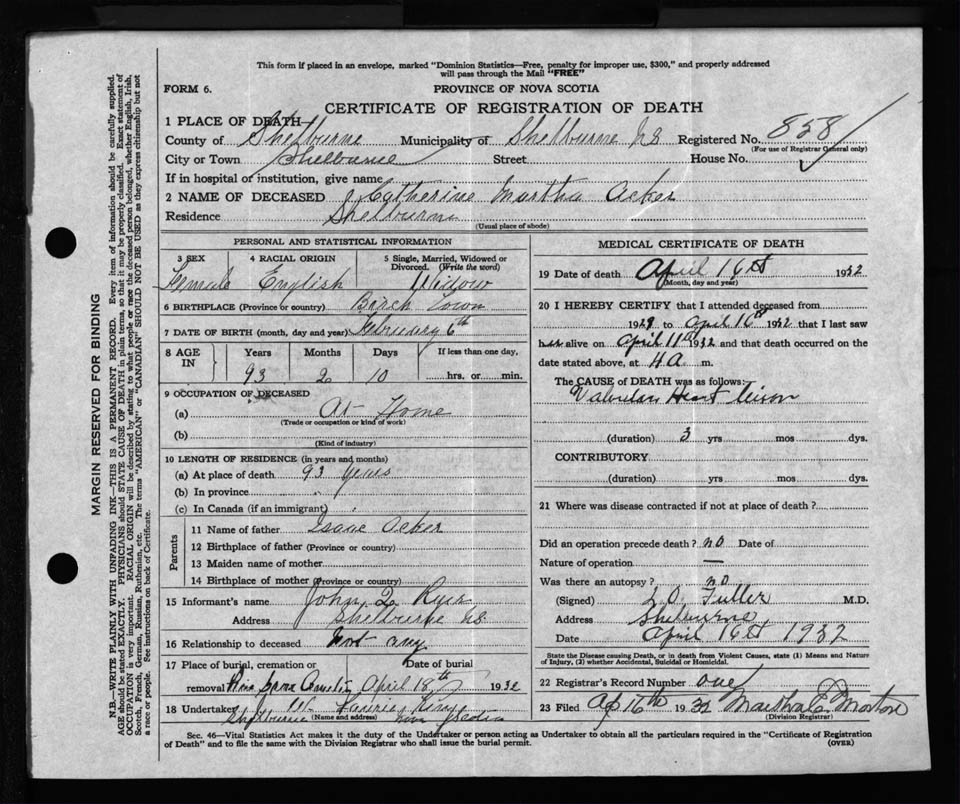 This form if placed in an envelope, marked "Dominion Statistics—Free, penalty for improper use, $300," and properly addressed
will pass through the Mail "FREE"
FORM 6.
PROVINCE OF NOVA SCOTIA
CERTIFICATE OF REGISTRATION OF DEATH
1 PLACE OF DEATH
County of Shelburne Municipality of Shelburne NS Registered No. 858
(For use of Registrar General only)
City or Town Shelburne Street House No.
If in hospital or institution, give name
2 NAME OF DECEASED Catherine Martha Acker
Residence Shelburne
(Usual place of abode)
PERSONAL AND STATISTICAL INFORMATION
3 SEX 4 RACIAL ORIGIN 5 Single, Married, Widowed or Divorced. (Write the word)
Female English Widow
6 BIRTHPLACE (Province or country) Birch Town
7 DATE OF BIRTH (month, day and year) February 6th
8 AGE IN Years Months Days If less than one day,
93 2 10 hrs. or min.
9 OCCUPATION OF DECEASED
(a) At Home
(Trade or occupation or kind of work)
(b)
(Kind of industry)
10 LENGTH OF RESIDENCE (in years and months)
(a) At place of death 93 years
(b) In province
(c) In Canada (if an immigrant)
Parents
11 Name of father Isaac Acker
12 Birthplace of father (Province or country)
13 Maiden name of mother
14 Birthplace of mother (Province or country)
15 Informant's name John
Address Shelburne NS
16 Relationship to deceased Not any
17 Place of burial, cremation or removal Date of burial
April 18th 1932
18 Undertaker King
Shelburne (Name and address) Nova Scotia
MEDICAL CERTIFICATE OF DEATH
19 Date of death April 16th 1932
(Month, day and year)
20 I HEREBY CERTIFY that I attended deceased from
1929 to April 16th 1932 that I last saw
her alive on April 11th 1932 and that death occurred on the
date stated above, at 4 A. m.
The CAUSE of DEATH was as follows:
Valvular Heart Lesion
(duration) 3 yrs mos dys.
CONTRIBUTORY
(duration) yrs. mos. dys.
21 Where was disease contracted if not at place of death?
Did an operation precede death? no Date of
Nature of operation —
Was there an autopsy? no
(Signed) L. O. Fuller M.D.
Address Shelburne
Date April 16th 1932
State the Disease causing Death, or in death from Violent Causes, state (1) Means and Nature
of Injury, (2) whether Accidental, Suicidal or Homicidal.
22 Registrar's Record Number one
23 Filed Ap 16th 1932 Martha C. Morton
(Division Registrar)
Sec. 46—Vital Statistics Act makes it the duty of the Undertaker or person acting as Undertaker to obtain all the particulars required in the "Certificate of Registration
of Death" and to file the same with the Division Registrar who shall issue the burial permit.
(OVER)
MARGIN RESERVED FOR BINDING
N.B.—WRITE PLAINLY WITH UNFADING INK—THIS IS A PERMANENT RECORD. Every item of information should be carefully supplied.
AGE should be stated EXACTLY. PHYSICIANS should STATE CAUSE OF DEATH in plain terms, so that it may be properly classified. Exact statement of
OCCUPATION is very important. RACIAL ORIGIN will be described by stating to what people or race the deceased person belonged, whether English, Irish,
Scotch, French, German, Russian, Ruthenian, etc. The terms "AMERICAN" or "CANADIAN" SHOULD NOT BE USED as they express citizenship but not
a race or people. See instructions on back of Certificate.